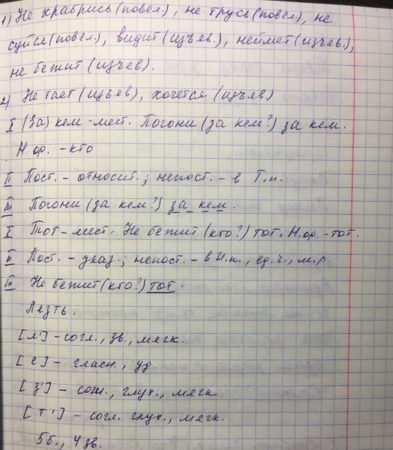 1) Не храбрись (повел), не трусь (повел), не
суйся (повел), видит (изъяв.), неймет (изъяв.),
не бежит (изъяв).
2) Не тает (изъяв), хочется (изъяв)
I (За) кем - мест. Погони (за кем?) за кем.
Н.ф. - кто
II Пост. - относит.; непост. - в Т.п.
III Погони (за кем?) за кем.
I Тот - мест. Не бежит (кто?) тот. Н.ф. - тот.
II Пост. - указ.; непост. - в И.п., ед.ч., м.р.
III Не бежит (кто?) тот.
Лезть.
[л'] - согл., зв., мягк.
[е] - гласн., уд.
[з'] - согл., глух., мягк.
[т'] - согл. глух., мягк.
5б., 4 зв.